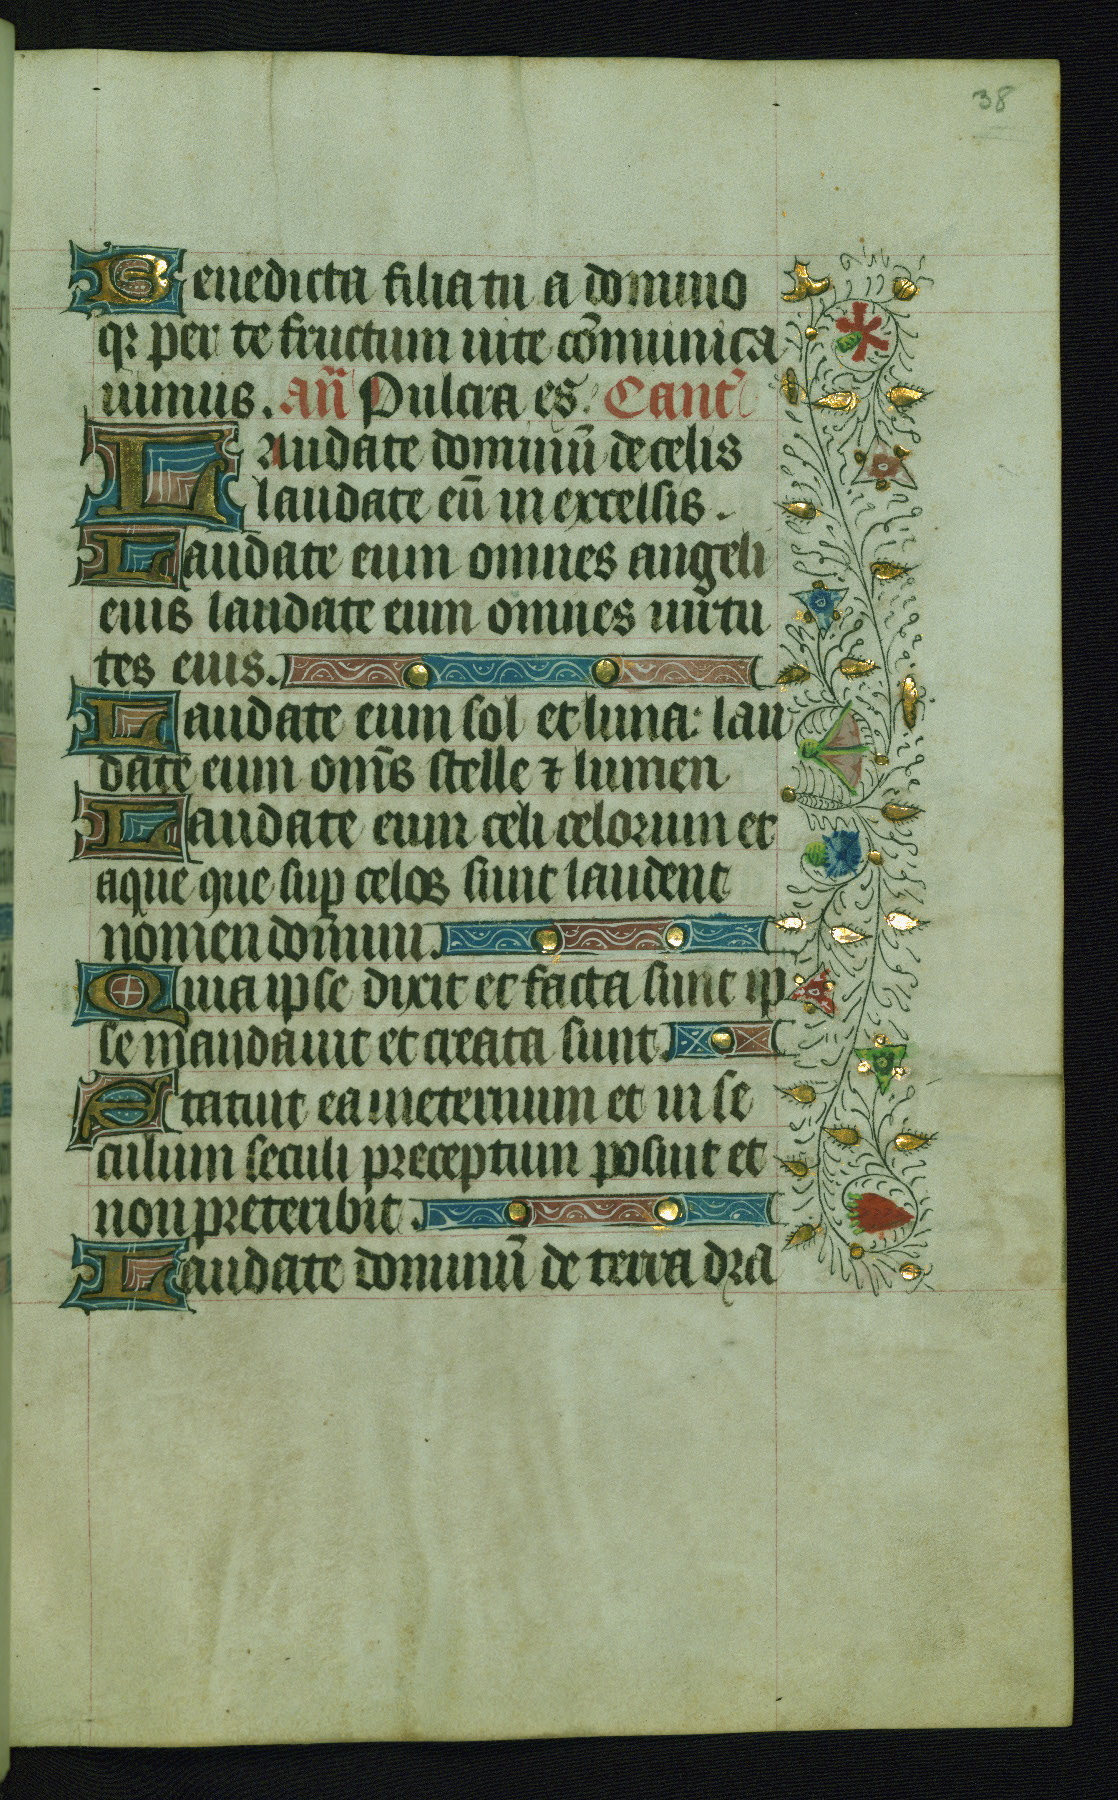 38
Benedicta filia tu a domino
qr per te fructum uite cōmunica
uimus. Añ Pulcra es. Cant᷒
Laudate dominū de celis
laudate eū in excelsis.
Laudate eum omnes angeli
eius laudate eum omnes uirtu
tes eius.
Laudate eum sol et luna: lau
date eum om̄s stelle ⁊ lumen
Laudate eum celi celorum et
aque que sup celos sunt laudent
nomen domini.
Quia ipse dixit et facta sunt ip
se mandauit et creata sunt.
Statuit ea in eternum et in se
culum seculi preceptum posuit et
non preteribit.
Laudate dominū de terra dra